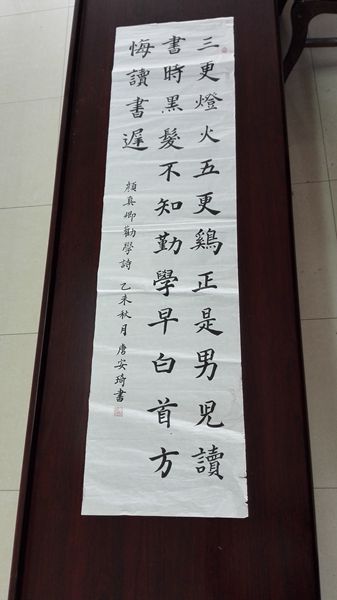 三更燈火五更鷄正是男児讀
書時黑髮不知勤學早白首方
悔讀書遲
顏真卿勸學詩 乙未秋月 唐安琦書